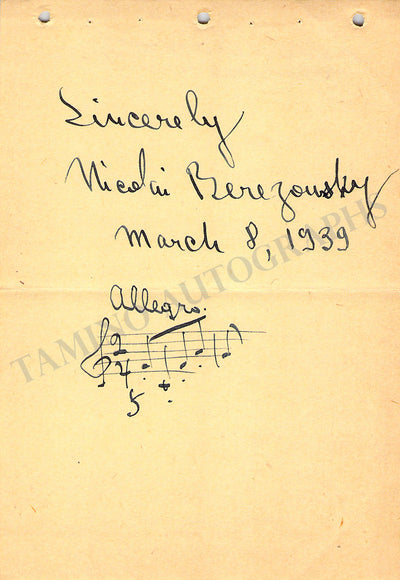 Sincerely
Nicolai Berezowsky
March 8, 1939
Allegro.
2
4
5
TAMINO AUTOGRAPHS